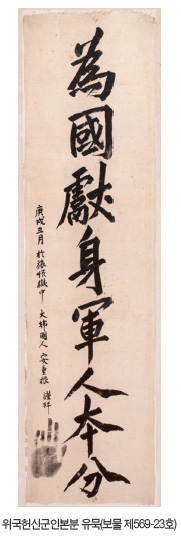 為國獻身軍人本分
庚戌三月 於旅順獄中 大韓國人 安重根 謹拜
위국헌신군인본분 유묵(보물 제569-23호)